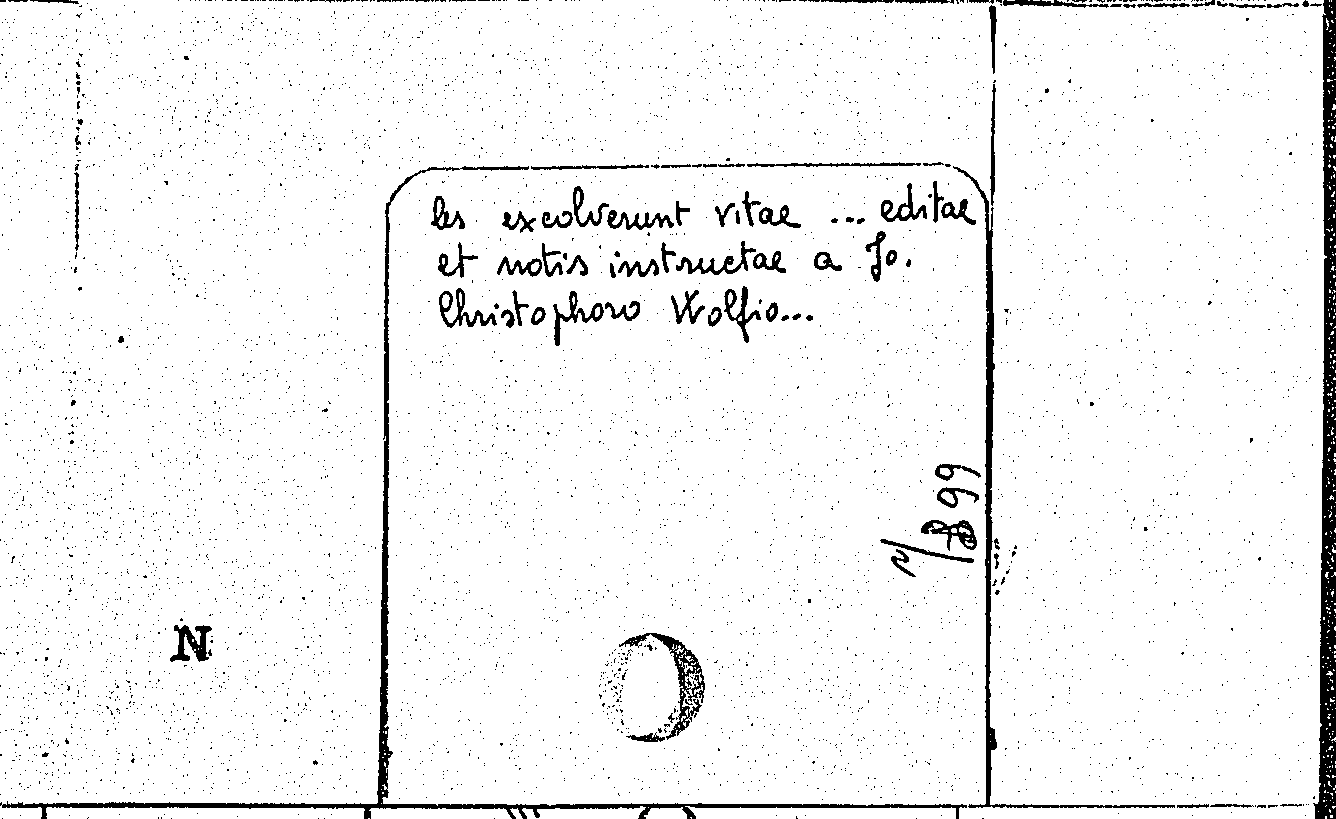 les excolverunt vitae ... editae
et notis instructae a Jo.
Christophoro Wolfio...
N